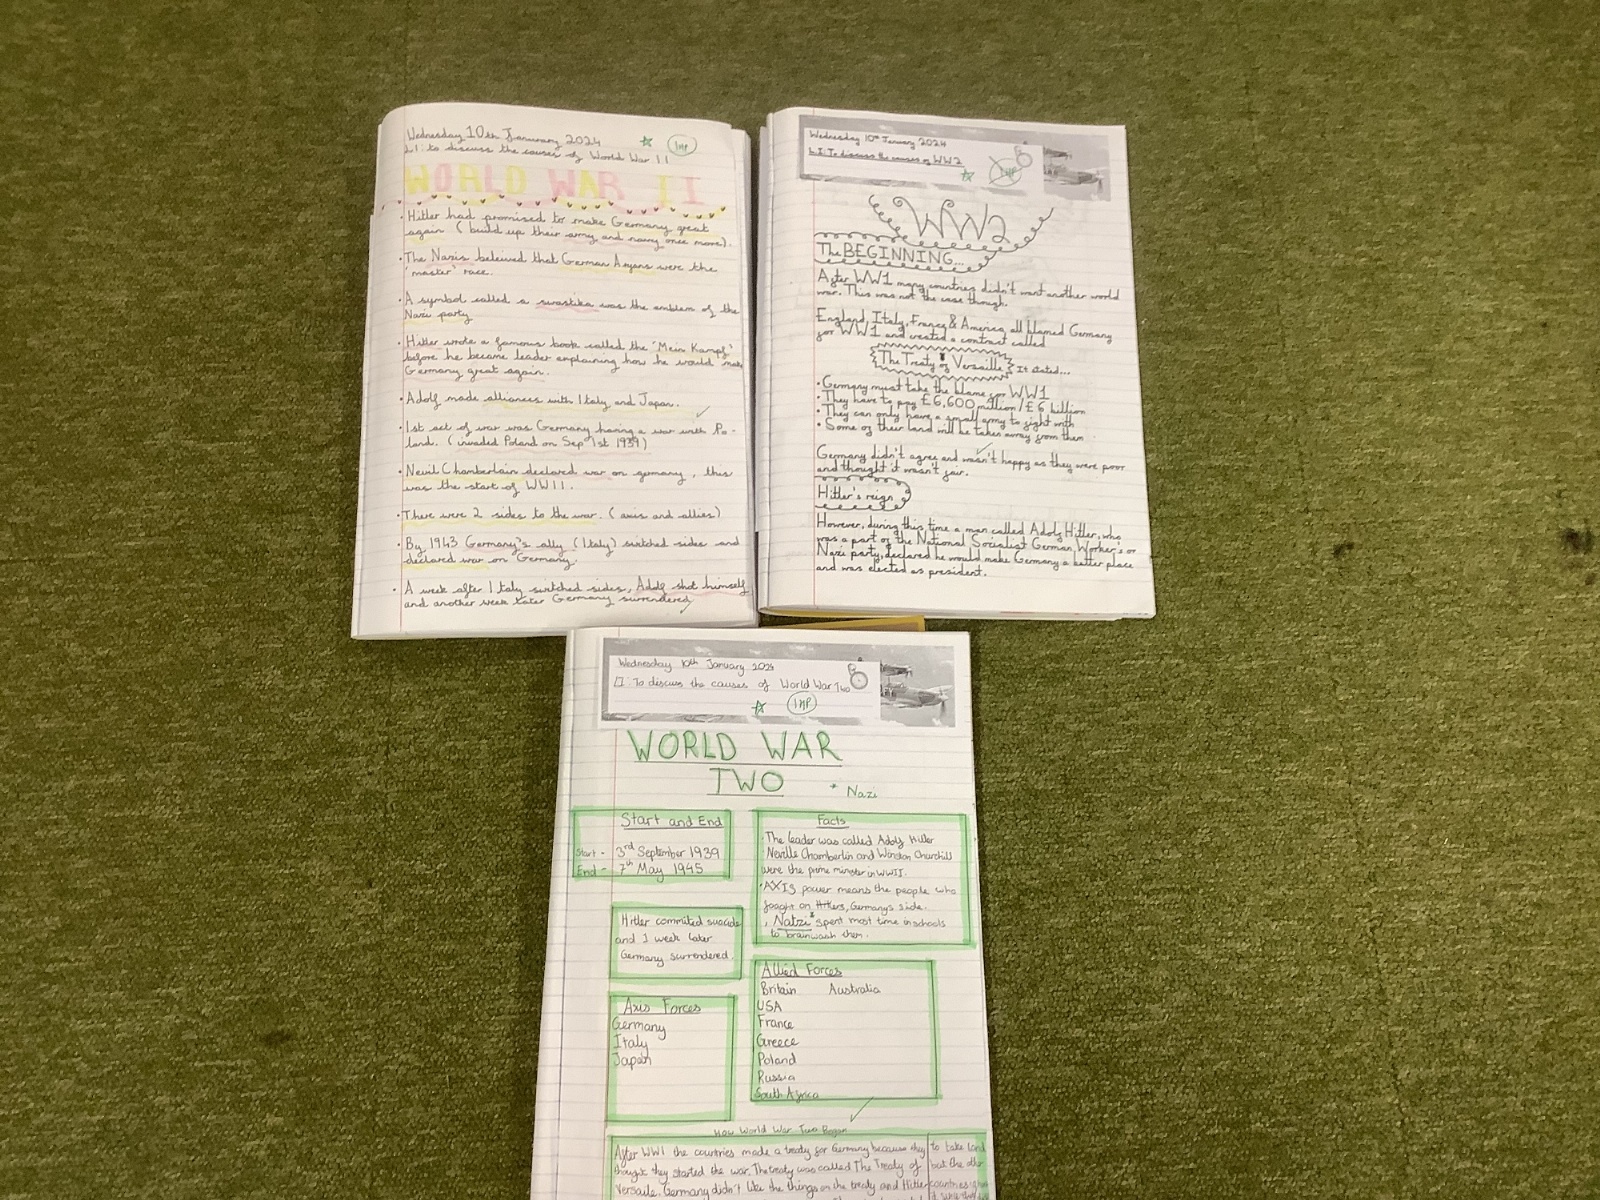 Wednesday 10th Janurary 2024
LI: to discuss the causes of World War II
IHP
WORLD WAR II
• Hitler had promised to make Germany great
again (build up their army and navy once more).
• The Nazis beleived that German Aryans were the
'master' race.
• A symbol called a swastika was the emblem of the
Nazi party
• Hitler wrote a famous book called the 'Mein Kampf'
before he became leader explaining how he would make
Germany great again.
• Adolf made alliances with Italy and Japan.
• 1st act of war was Germany having a war with Po-
land. (invaded Poland on Sep 1st 1939)
• Nevil Chamberlain declared war on germany, this
was the start of WWII.
• There were 2 sides to the war. (axis and allies)
• By 1943 Germany's ally (Italy) switched sides and
declared war on Germany.
• A week after Italy switched sides, Adolf shot himself
and another week later Germany surrendered
Wednesday 10th January 2024
LI: To discuss the causes of WW2
IHP
WW2
The BEGINNING...
After WW1 many countries didn't want another world
war. This was not the case though.
England, Italy, France & America all blamed Germany
for WW1 and created a contract called
The Treaty of Versaille It stated...
• Germany must take the blame for WW1
• They have to pay £6,600 million/£6 billion
• They can only have a small army to fight with
• Some of their land will be taken away from them
Germany didn't agree and wasn't happy as they were poor
and thought it wasn't fair.
Hitler's reign
However, during this time a man called Adolf Hitler, who
was a part of the National Socialist German Worker's or
Nazi party, declared he would make Germany a better place
and was elected as president.
Wednesday 10th January 2024
LI: To discuss the causes of World War Two
IHP
WORLD WAR
TWO
* Nazi
Start and End
Start - 3rd September 1939
End - 7th May 1945
Facts
• The leader was called Adolf Hitler
Neville Chamberlin and Winston Churchill
were the prime minister in WWII.
• AXIS power means the people who
fought on Hitlers, Germany's side.
• Natzi* spent most time in schools
to brainwash them.
Hitler commited suacide
and 1 week later
Germany surrendered.
Axis Forces
Germany
Italy
Japan
Allied Forces
Britain Australia
USA
France
Greece
Poland
Russia
South Africa
How World War Two Began
After WW1 the countries made a treaty for Germany because they
thought they started the war. The treaty was called The Treaty of
Versaile. Germany didn't like the things on the treaty and Hitler
to take land
but the other
countries